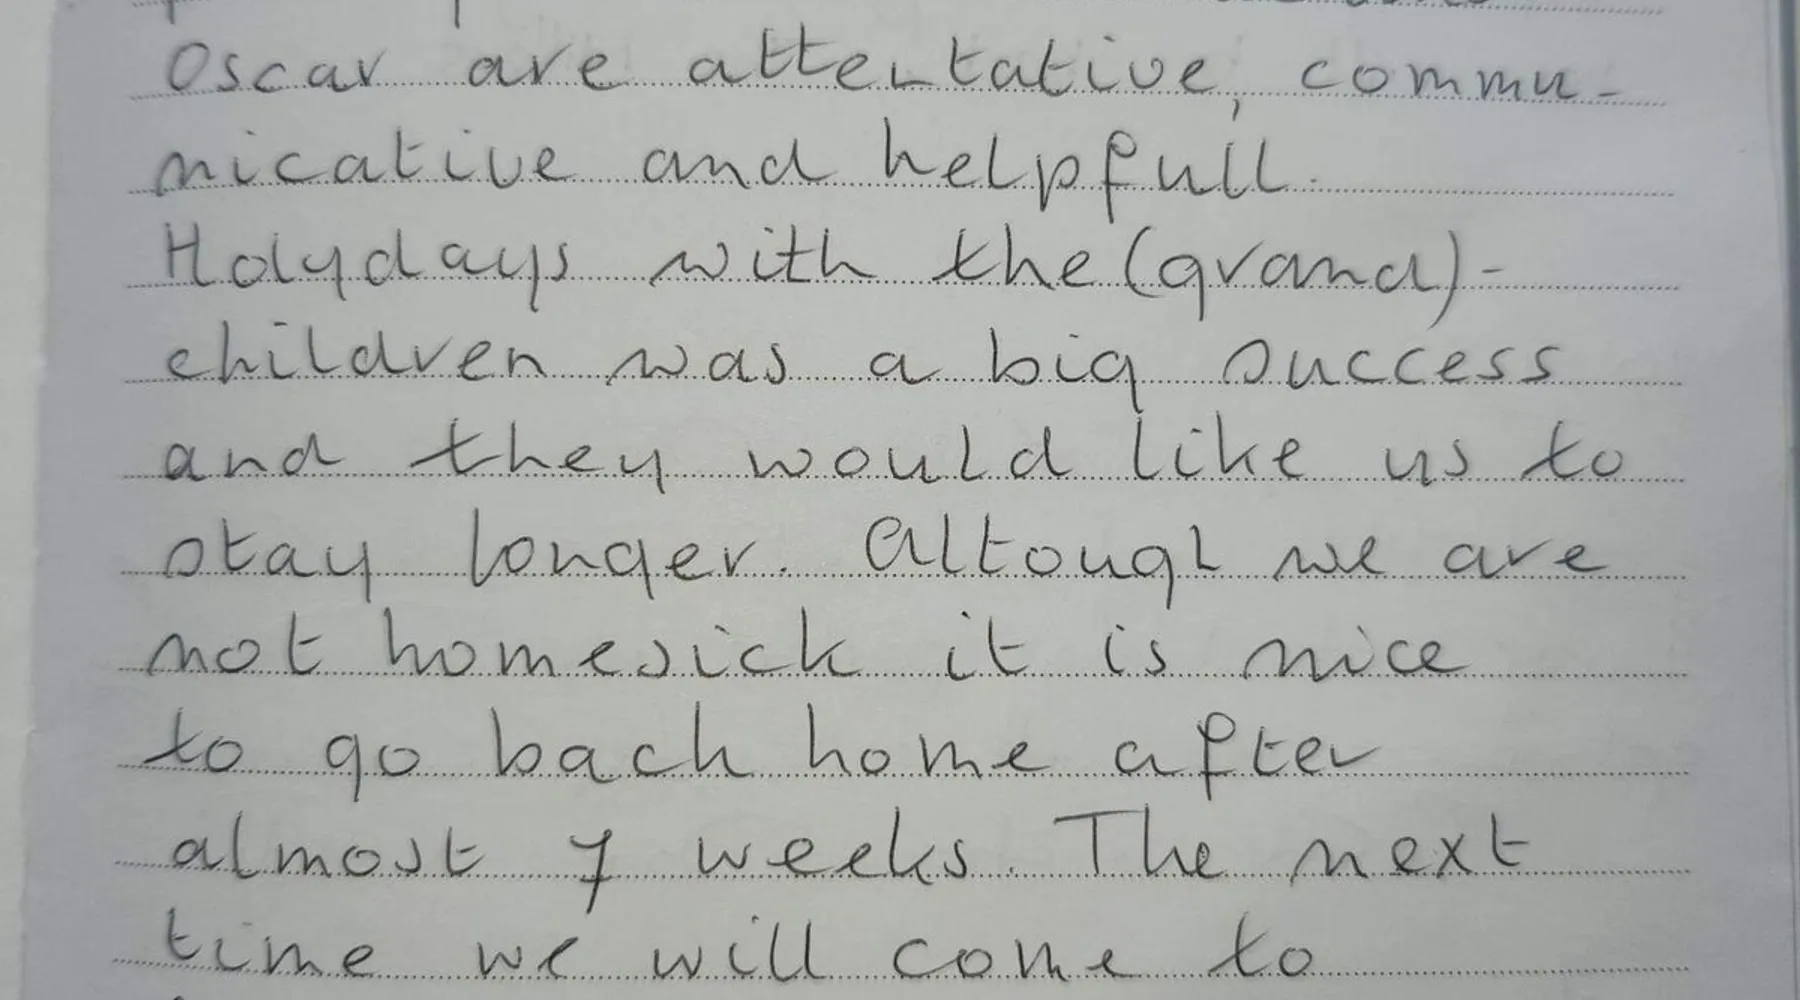 Oscar are attentative, commu-
nicative and helpfull.
Holydays with the (grand)-
children was a big success
and they would like us to
stay longer. Altough we are
not homesick it is nice
to go back home after
almost 7 weeks. The next
time we will come to